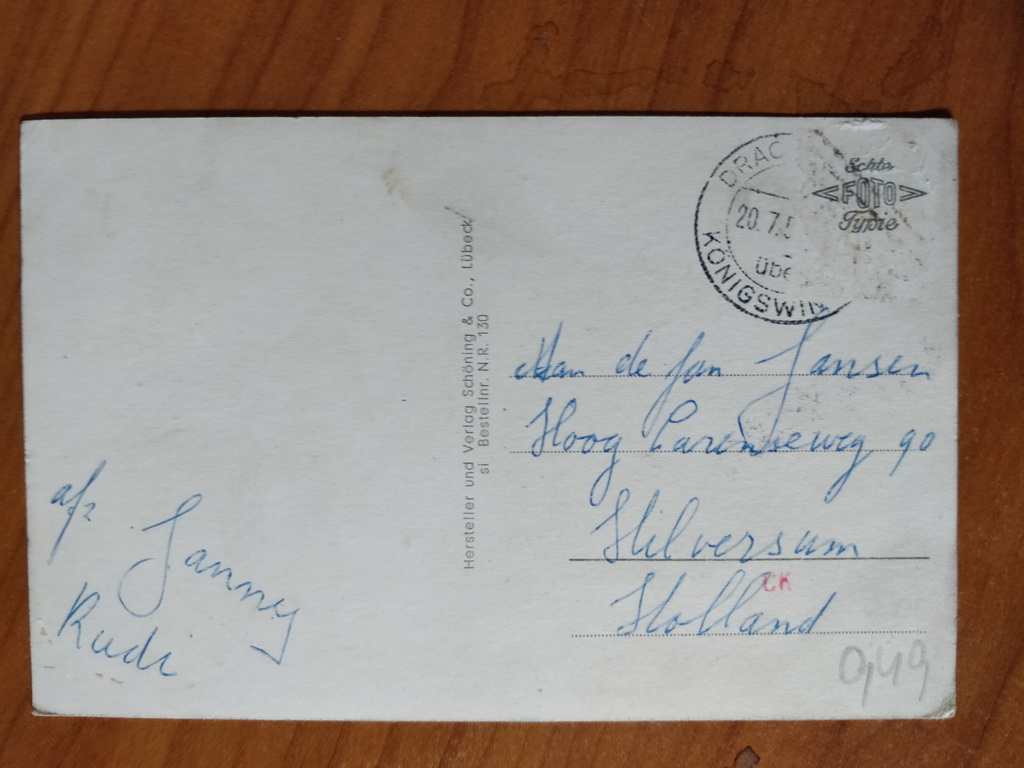 DRAC
20. 7. 5
übe
KÖNIGSWIN
Echte
FOTO
Typie
Hersteller und Verlag Schöning & Co., Lübeck
si Bestellnr. N.R. 130
Aan de fam Jansen
Hoog
weg 90
Hilversum
Holland
CK
0,49
afz
Janny
Rudi